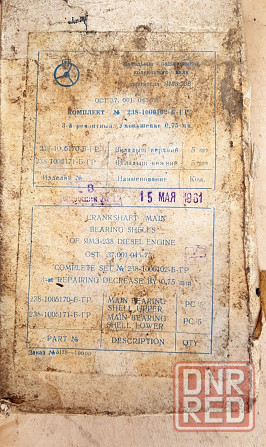 коленчатого вала
КОМПЛЕКТ № 238-1000102-Б-ГР
3-й ремонтный. Уменьшение 0,75 мм
238-1005170-Б-ГР Вкладыш верхний 5 шт
238-1005171-Б-ГР Вкладыш нижний 5 шт
Изделие № Наименование Кол.
15 МАЯ 1981
CRANKSHAFT MAIN
BEARING SHELLS
OF ЯМЗ-238 DIESEL ENGINE
OST
COMPLETE SET № 238-1000102-Б-ГР
REPAIRING DECREASE BY 0,75 mm
238-1005170-Б-ГР MAIN BEARING SHELL UPPER PC 5
238-1005171-Б-ГР MAIN BEARING SHELL LOWER PC 5
PART № DESCRIPTION QTY
Заказ
DNR
RED